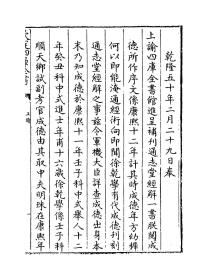 乾隆五十年二月二十九日奉
上諭四庫全書館進呈補刊通志堂經解一書朕閱成
德所作序文係康熙十二年計其時成德年方幼穉
何以即能淹通經術向即聞徐乾學有代成德刊刻
通志堂經解之事茲令軍機大臣詳查成德出身本
末乃知成德於康熙十一年壬子科中式舉人十二
年癸丑科中式進士年甫十六歲徐乾學係壬子科
順天鄉試副考官成德由其取中夫明珠在康熙年